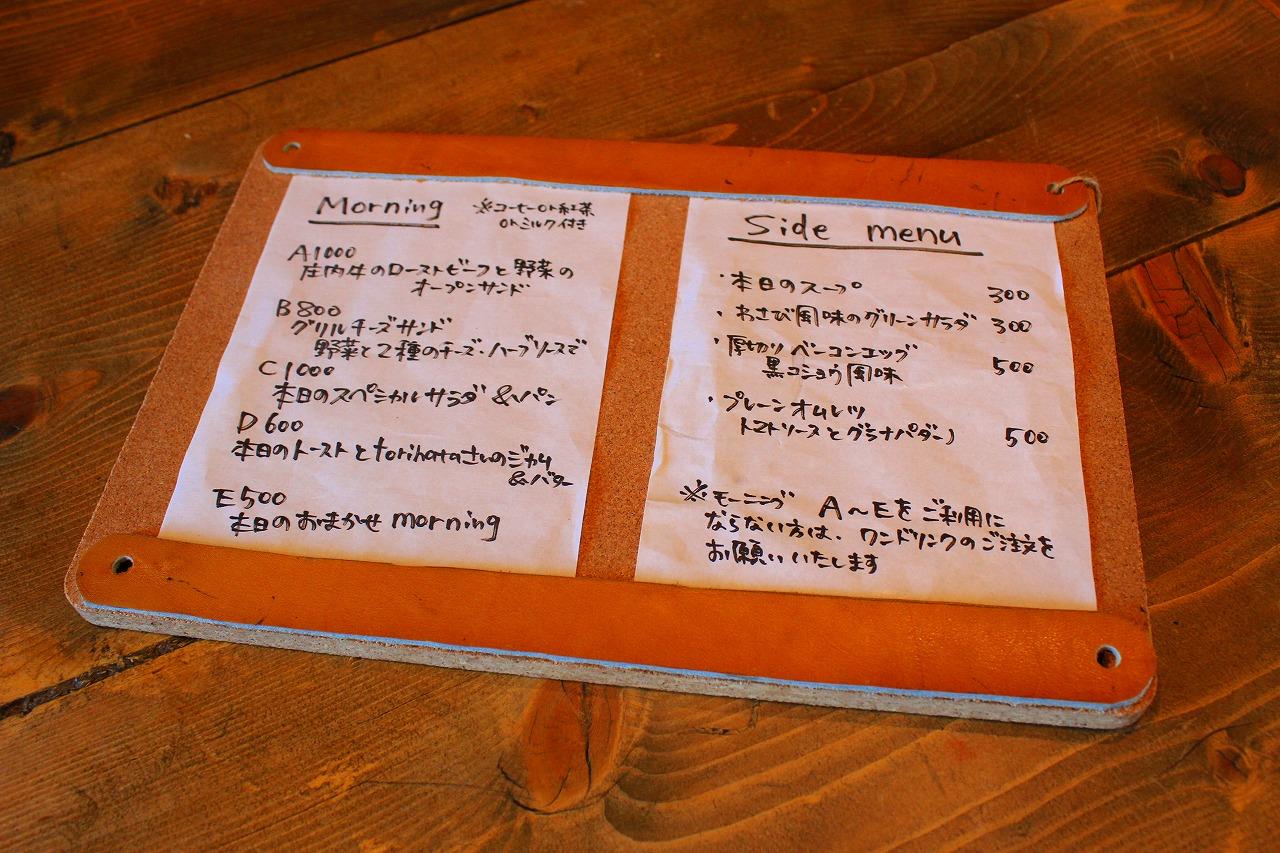 Morning
※コーヒーor紅茶
orミルク付き
A 1000
庄内牛のローストビーフと野菜の
オープンサンド
B 800
グリルチーズサンド
野菜と2種のチーズ・ハーブソースで
C 1000
本日のスペシャルサラダ &パン
D 600
本日のトーストとtorihataさんのジャム
&バター
E 500
本日のおまかせ morning
Side menu
・本日のスープ 300
・わさび風味のグリーンサラダ 300
・厚切りベーコンエッグ
黒コショウ風味 500
・プレーンオムレツ
トマトソースとグラナパダーノ 500
※モーニング A～Eをご利用に
ならない方は、ワンドリンクのご注文を
お願いいたします